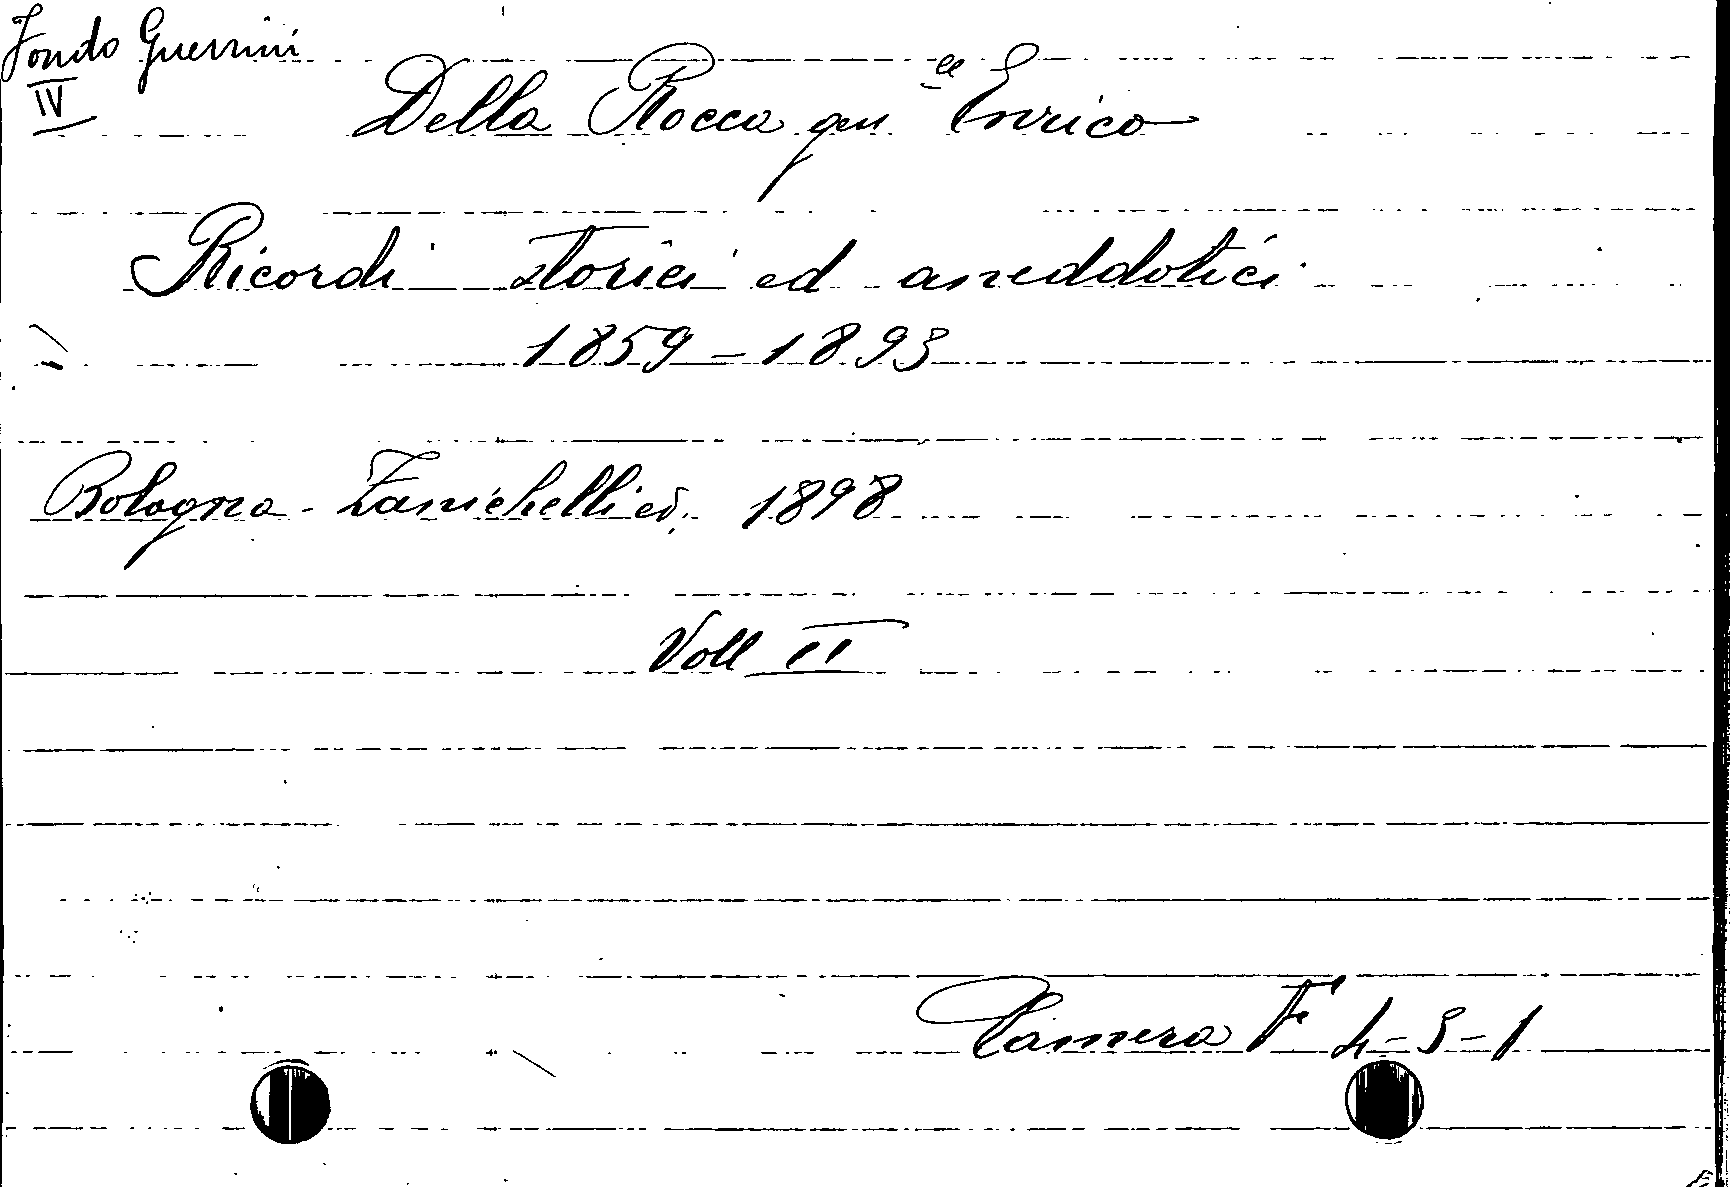 Fondo Guerrini
IV
Della Rocca gen.le Enrico
Ricordi storici ed aneddotici
1859-1893
Bologna - Zanichelli ed. 1898
Voll II
Camera F 4-3-1